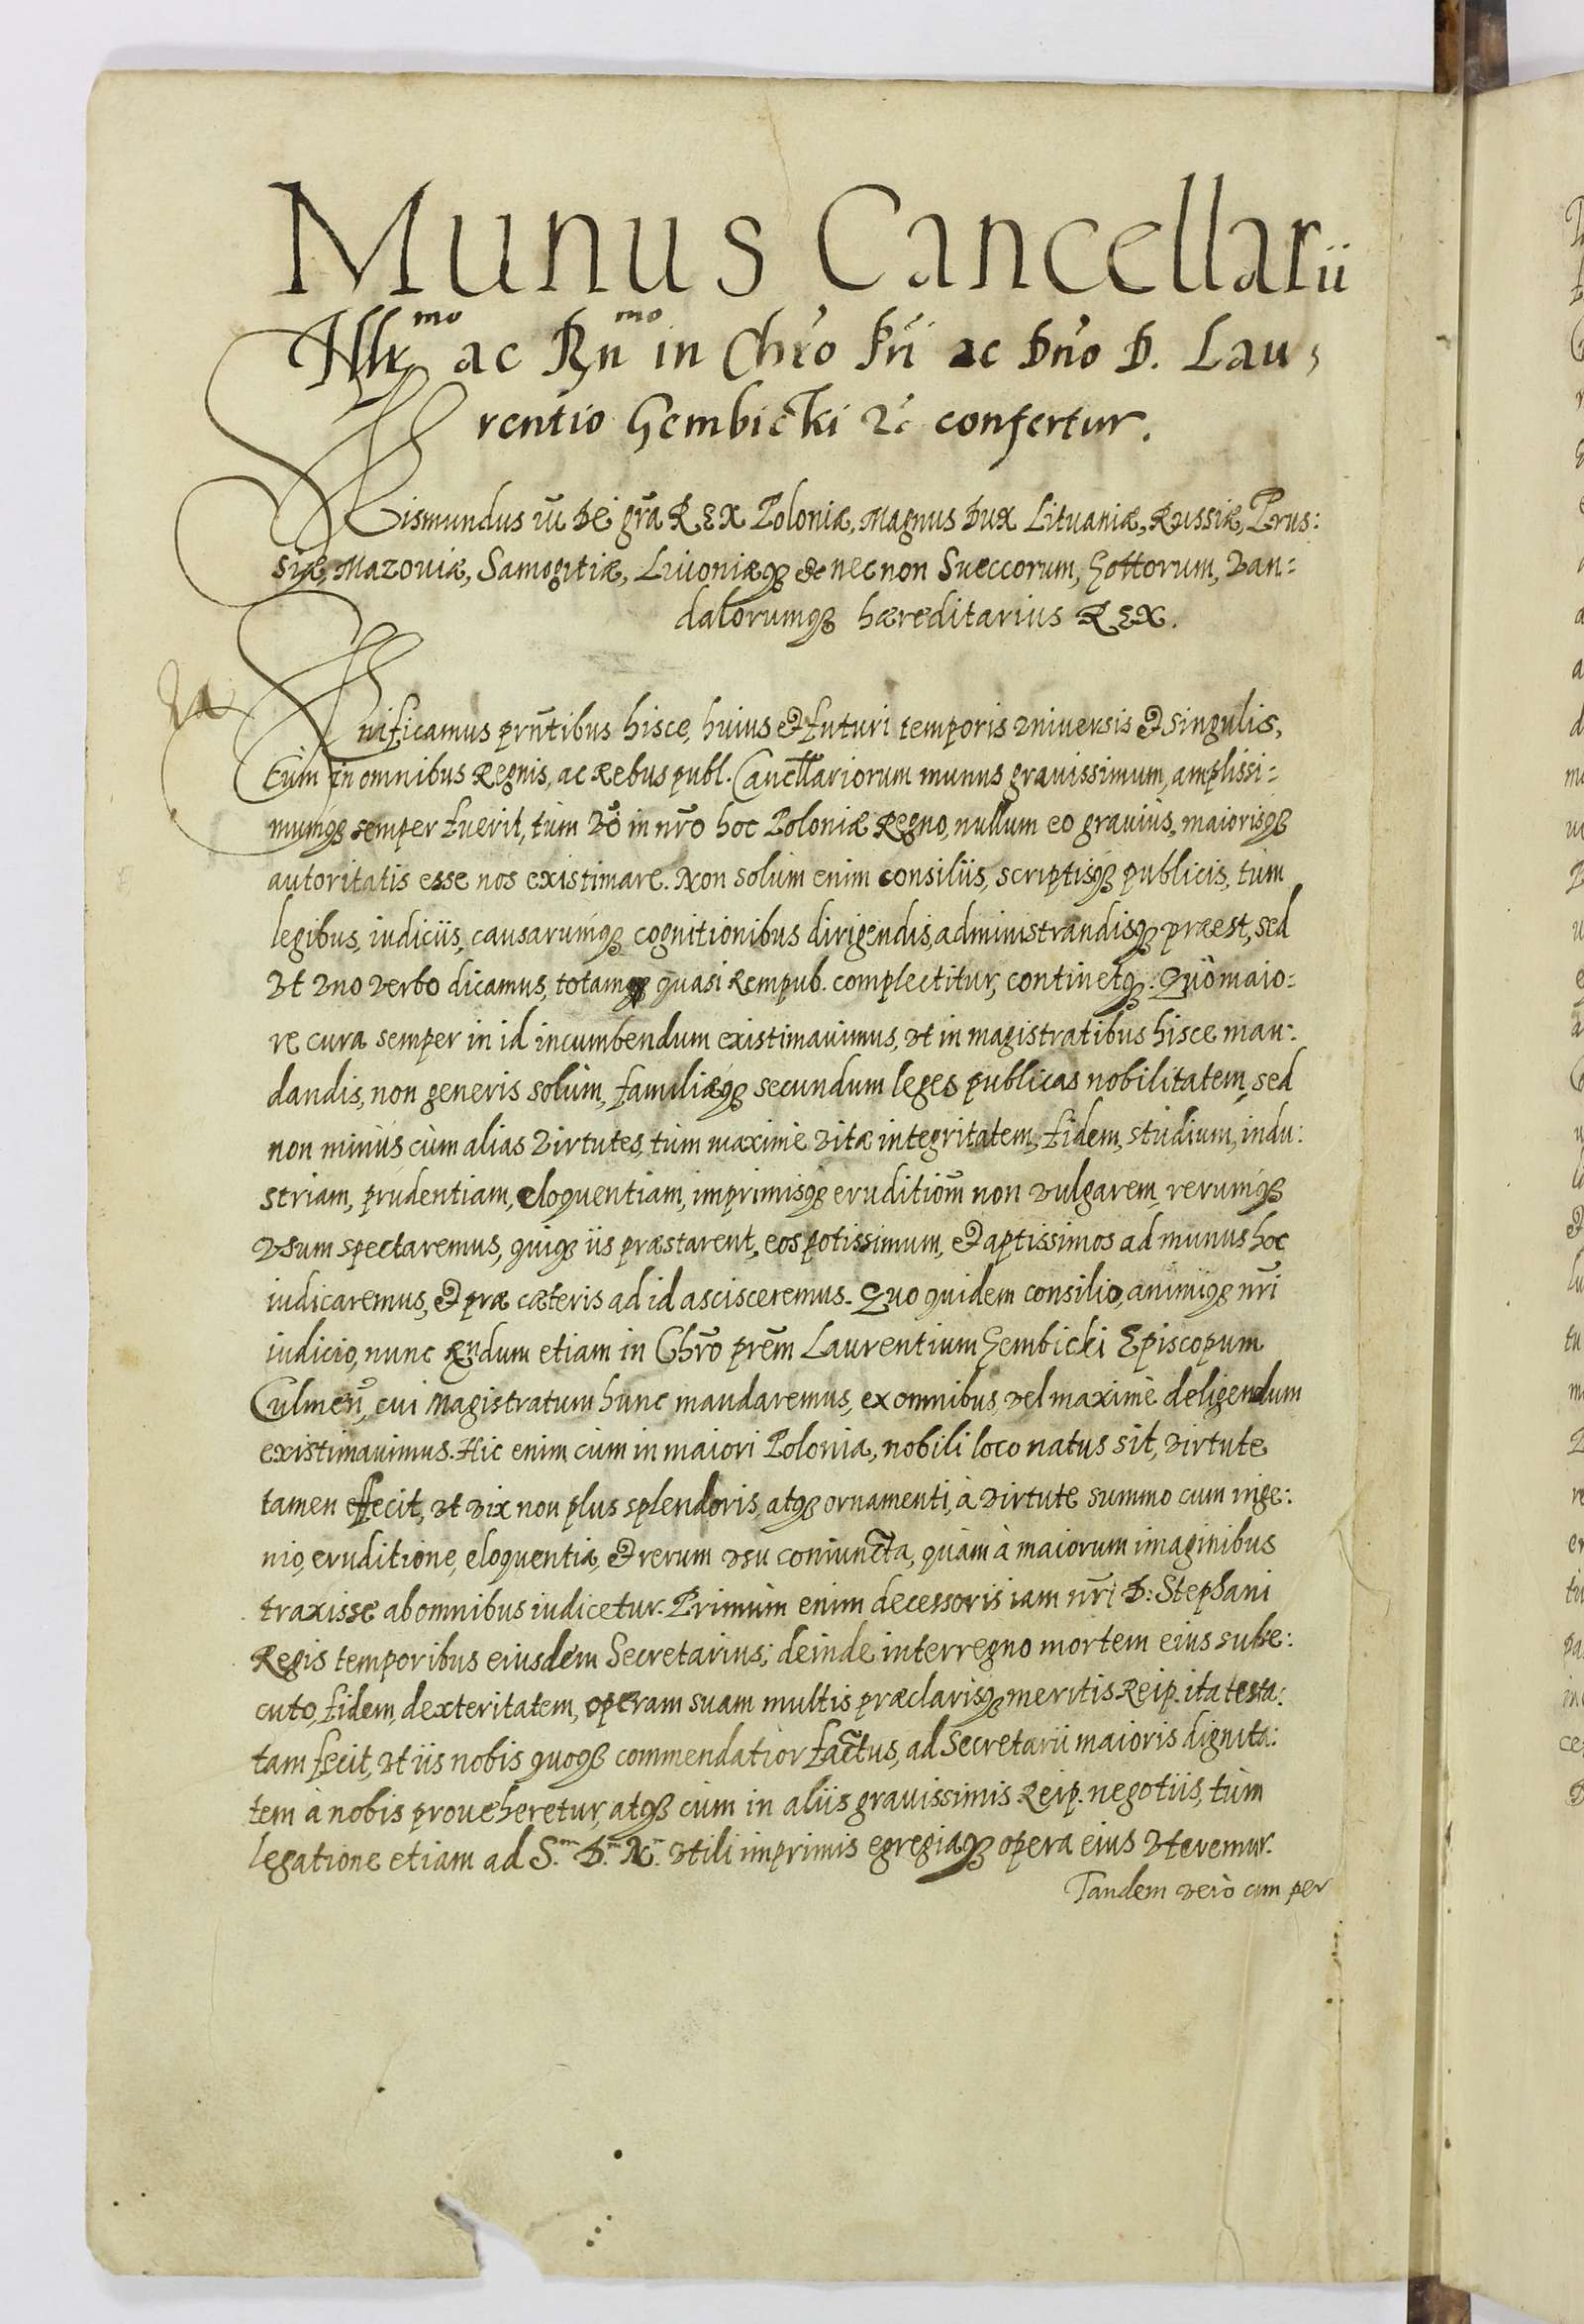 Munus Cancellarii
Illr̃mo ac Rñmo in Chr̃o Pr̃i ac Dño D. Lau,
rentio Gembicki &c confertur.
Sigismundus iii Dei gr̃a REX Poloniæ, Magnus Dux Lituaniæ, Russiæ, Prus:
siæ, Mazouiæ, Samogitiæ, Liuoniæq; &c necnon Sueccorum, Gottorum, Van:
dalorumq; hæreditarius REX.
Significamus prñtibus hisce, huius et futuri temporis vniuersis et singulis,
Cùm in omnibus Regnis, ac Rebus publ. Cancellariorum munus grauissimum, amplissi:
mumq; semper fuerit, tum vo͂ in nr̃o hoc Poloniæ Regno, nullum eo grauius, maiorisq;
autoritatis esse nos existimare. Non solùm enim consiliis, scriptisq; publicis, tùm
legibus, iudiciis, causarumq; cognitionibus dirigendis, administrandisq; præest, sed
vt vno verbo dicamus, totamq; quasi Rempub. complectitur, continetq;. Quò maio:
re cura semper in id incumbendum existimauimus, vt in magistratibus hisce man:
dandis, non generis solùm, familiæq; secundum leges publicas nobilitatem, sed
non minùs cùm alias virtutes, tùm maximè vitæ integritatem, fidem, studium, indu:
striam, prudentiam, eloquentiam, imprimisq; eruditiom̃ non vulgarem, rerumq;
vsum spectaremus, quiq; iis præstarent, eos potissimum, et aptissimos ad munus hoc
iudicaremus, et præ cæteris ad id ascisceremus. Quo quidem consilio, animiq; nr̃i
iudicio, nunc Rndum etiam in Chr̃o prẽm Laurentium Gembicki Episcopum
Culmeñ, cui Magistratum hunc mandaremus, ex omnibus, vel maximè deligendum
existimauimus. Hic enim cùm in maiori Polonia, nobili loco natus sit, virtute
tamen effecit, vt vix non plus splendoris, atq; ornamenti, à virtute summo cum inge:
nio, eruditione, eloquentia, et rerum vsu coniuncta, quàm à maiorum imaginibus
traxisse ab omnibus iudicetur. Primùm enim decessoris iam nr̃i D: Stephani
Regis temporibus eiusdem Secretarius; deinde interregno mortem eius subse:
cuto, fidem, dexteritatem, operam suam multis præclarisq; meritis Reip. ita testa:
tam fecit, vt iis nobis quoq; commendatior factus, ad Secretarii maioris dignita:
tem à nobis proueheretur, atq; cùm in aliis grauissimis Reip. negotiis, tùm
legatione etiam ad S.m D.m N.m vtili imprimis egregiaq; opera eius vteremur.
Tandem verò cum per